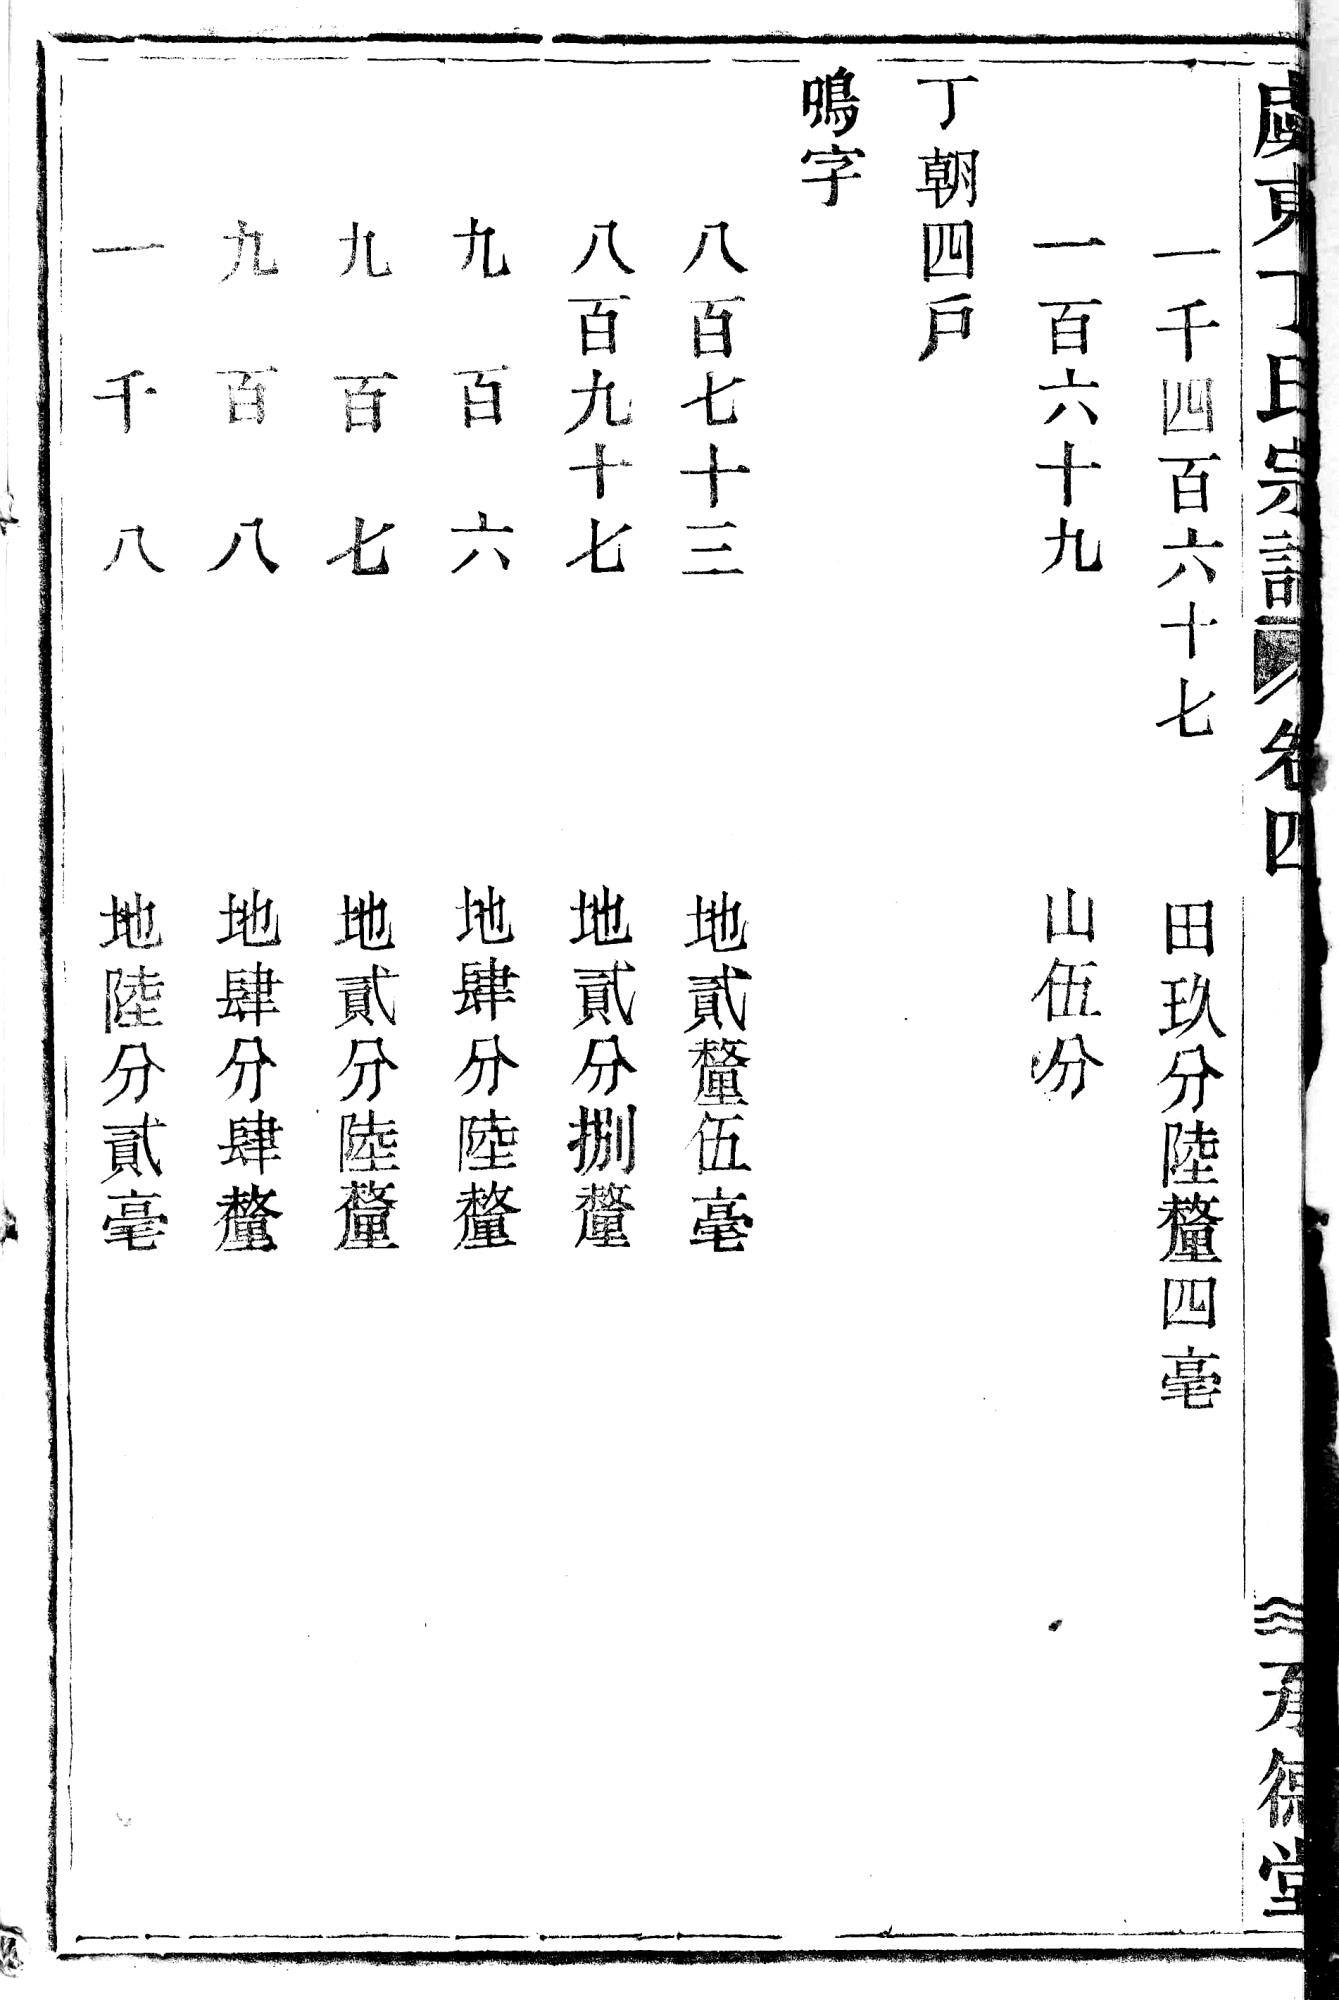 東丁氏宗譜 卷四 承德堂
一千四百六十七 田玖分陸釐四毫
一百六十九 山伍分
丁朝四戶
鳴字
八百七十三 地貳釐伍毫
八百九十七 地貳分捌釐
九百六 地肆分陸釐
九百七 地貳分陸釐
九百八 地肆分肆釐
一千八 地陸分貳毫